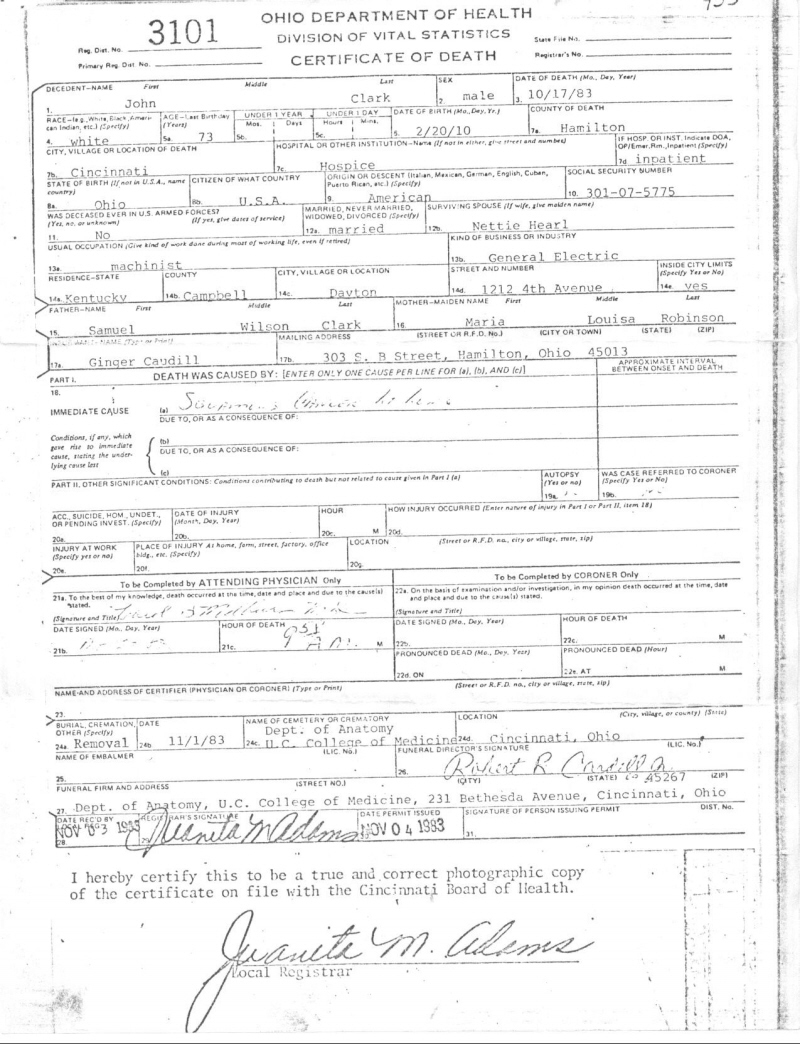 OHIO DEPARTMENT OF HEALTH
DIVISION OF VITAL STATISTICS
CERTIFICATE OF DEATH
Reg. Dist. No. 3101
Primary Reg. Dist. No.
State File No.
Registrar's No.
DECEDENT—NAME First Middle Last SEX DATE OF DEATH (Mo., Day, Year)
1. John Clark 2. male 3. 10/17/83
RACE—(e.g., White, Black, American Indian, etc.) (Specify) AGE—Last Birthday (Years) UNDER 1 YEAR Mos. Days UNDER 1 DAY Hours Mins. DATE OF BIRTH (Mo., Day, Yr.) COUNTY OF DEATH
4. white 5a. 73 5b. 5c. 6. 2/20/10 7a. Hamilton
CITY, VILLAGE OR LOCATION OF DEATH HOSPITAL OR OTHER INSTITUTION—Name (If not in either, give street and number) IF HOSP. OR INST. Indicate DOA, OP/Emer. Rm., Inpatient (Specify)
7b. Cincinnati 7c. Hospice 7d inpatient
STATE OF BIRTH (If not in U.S.A., name country) CITIZEN OF WHAT COUNTRY ORIGIN OR DESCENT (Italian, Mexican, German, English, Cuban, Puerto Rican, etc.) (Specify) SOCIAL SECURITY NUMBER
8a. Ohio 8b. U.S.A. 9. American 10. 301-07-5775
WAS DECEASED EVER IN U.S. ARMED FORCES? (Yes, no, or unknown) (If yes, give dates of service) MARRIED, NEVER MARRIED, WIDOWED, DIVORCED (Specify) SURVIVING SPOUSE (If wife, give maiden name)
11. No 12a. married 12b. Nettie Hearl
USUAL OCCUPATION (Give kind of work done during most of working life, even if retired) KIND OF BUSINESS OR INDUSTRY
13a. machinist 13b. General Electric
RESIDENCE—STATE COUNTY CITY, VILLAGE OR LOCATION STREET AND NUMBER INSIDE CITY LIMITS (Specify Yes or No)
14a. Kentucky 14b. Campbell 14c. Dayton 14d. 1212 4th Avenue 14e. yes
FATHER—NAME First Middle Last MOTHER—MAIDEN NAME First Middle Last
15. Samuel Wilson Clark 16. Maria Louisa Robinson
INFORMANT—NAME (Type or Print) MAILING ADDRESS (STREET OR R.F.D. No.) (CITY OR TOWN) (STATE) (ZIP)
17a. Ginger Caudill 17b. 303 S. B Street, Hamilton, Ohio 45013
PART I. DEATH WAS CAUSED BY: [ENTER ONLY ONE CAUSE PER LINE FOR (a), (b), AND (c)] APPROXIMATE INTERVAL BETWEEN ONSET AND DEATH
18.
IMMEDIATE CAUSE (a)
DUE TO, OR AS A CONSEQUENCE OF:
Conditions, if any, which gave rise to immediate cause, stating the underlying cause last
(b)
DUE TO, OR AS A CONSEQUENCE OF:
(c)
PART II. OTHER SIGNIFICANT CONDITIONS: Conditions contributing to death but not related to cause given in Part I (a) AUTOPSY (Yes or no) WAS CASE REFERRED TO CORONER (Specify Yes or No)
19a. 19b.
ACC., SUICIDE, HOM., UNDET., OR PENDING INVEST. (Specify) DATE OF INJURY (Month, Day, Year) HOUR HOW INJURY OCCURRED (Enter nature of injury in Part I or Part II, item 18)
20a. 20b. 20c. M 20d.
INJURY AT WORK (Specify yes or no) PLACE OF INJURY At home, farm, street, factory, office bldg., etc. (Specify) LOCATION (Street or R.F.D. no., city or village, state, zip)
20e. 20f. 20g.
To be Completed by ATTENDING PHYSICIAN Only To be Completed by CORONER Only
21a. To the best of my knowledge, death occurred at the time, date and place and due to the cause(s) stated. 22a. On the basis of examination and/or investigation, in my opinion death occurred at the time, date and place and due to the cause(s) stated.
(Signature and Title) (Signature and Title)
DATE SIGNED (Mo., Day, Year) HOUR OF DEATH DATE SIGNED (Mo., Day, Year) HOUR OF DEATH
21b. 21c. M 22b. 22c. M
PRONOUNCED DEAD (Mo., Day, Year) PRONOUNCED DEAD (Hour)
22d. ON 22e. AT M
NAME AND ADDRESS OF CERTIFIER (PHYSICIAN OR CORONER) (Type or Print) (Street or R.F.D. no., city or village, state, zip)
23.
BURIAL, CREMATION, OTHER (Specify) DATE NAME OF CEMETERY OR CREMATORY LOCATION (City, village, or county) (State)
24a. Removal 24b. 11/1/83 24c. Dept. of Anatomy U.C. College of Medicine 24d. Cincinnati, Ohio
NAME OF EMBALMER (LIC. No.) FUNERAL DIRECTOR'S SIGNATURE (LIC. No.)
25. 26.
FUNERAL FIRM AND ADDRESS (STREET NO.) (CITY) (STATE) 45267 (ZIP)
27. Dept. of Anatomy, U.C. College of Medicine, 231 Bethesda Avenue, Cincinnati, Ohio
DATE REC'D BY REGISTRAR'S SIGNATURE DATE PERMIT ISSUED SIGNATURE OF PERSON ISSUING PERMIT DIST. No.
28. NOV 03 1983 29. Juanita M Adams NOV 04 1983 31.
I hereby certify this to be a true and correct photographic copy
of the certificate on file with the Cincinnati Board of Health.
Juanita M. Adams
Local Registrar